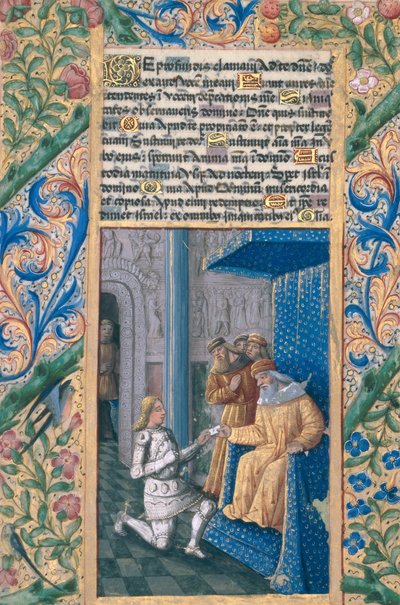 De profundis clamavi Ad te dñe : do
exaudi vocem meam Fiant aures tue
intendentes : in vocem deprecationis mee Si ini
tates observaveris domine : Domine quis susti
bit Quia Apud te propitiatio est et propter legem
Sustinui te dñe Sustinuit Anima mea in
verbo eius : speravit Anima mea in domino
todia matutina Usque Ad noctem : Speret israel
domino Quia Apud dominum misericordia
et copiosa Apud eum redemptio Et
met israel : ex omnibus iniquitatibus